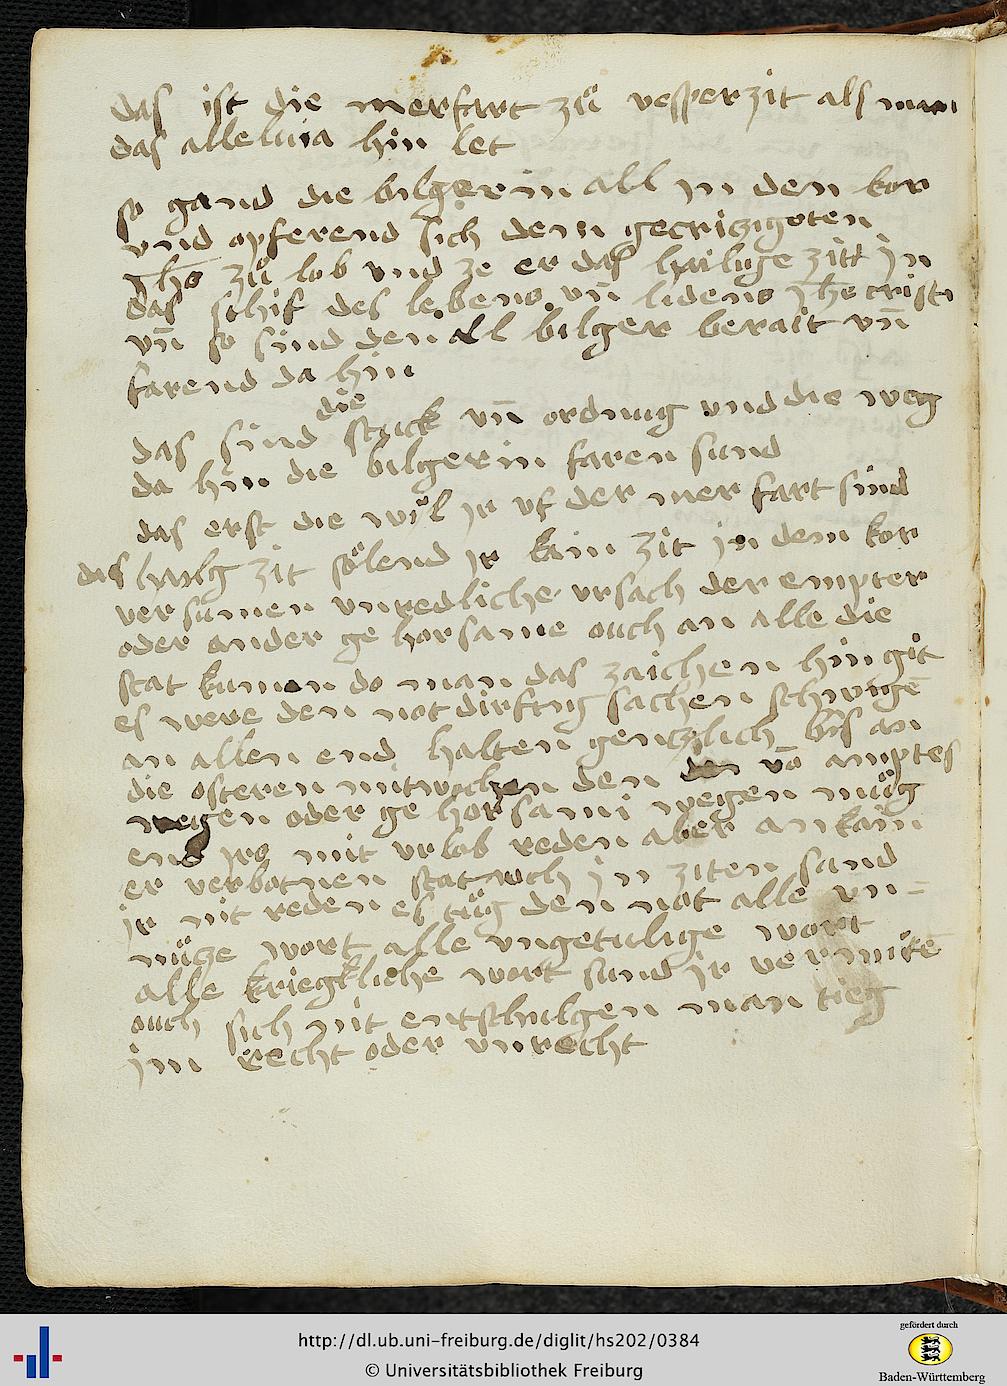 das ist die merfart zů vesperzit als man
das alleluia hin let
so gand die bilgerin all jn den kor
vnd opferend sich dem gecrizigoten
jhs zů lob vnd ze er das hailige zitt jn
das schif des lebens vn̄ lidens jhs cristi
vn̄ so sind den all bilger berait vn̄
farend da hin
das sind die stuck vn̄ ordnung vnd die weg
da hin die bilgerin faren sand
das erst die wil jr vf der mer fart sind
das hailg zit sölend jr kain zit in dem kor
versumen vnredliche vrsach der empter
oder ander ge horsame ouch an alle die
stat kumen do man das zaichen hin git
es were den notdirftig sachen schwigē
an allen end halten gentzlich bis an
die osteren mitwochen den vō amptes
wegen oder ge horsami wegen müg
end jrs mit vrlob reden aber an kain
er verbotnen stat och jn ziten sand
ir nit reden es tüg den not alle vn=
nütze wort alle vngetulige wort
alle kriegkliche wort sand jr vermitē
ouch sich nit entschulgen man tieg
im recht oder vnrecht
http://dl.ub.uni-freiburg.de/diglit/hs202/0384
© Universitätsbibliothek Freiburg
gefördert durch
Baden-Württemberg